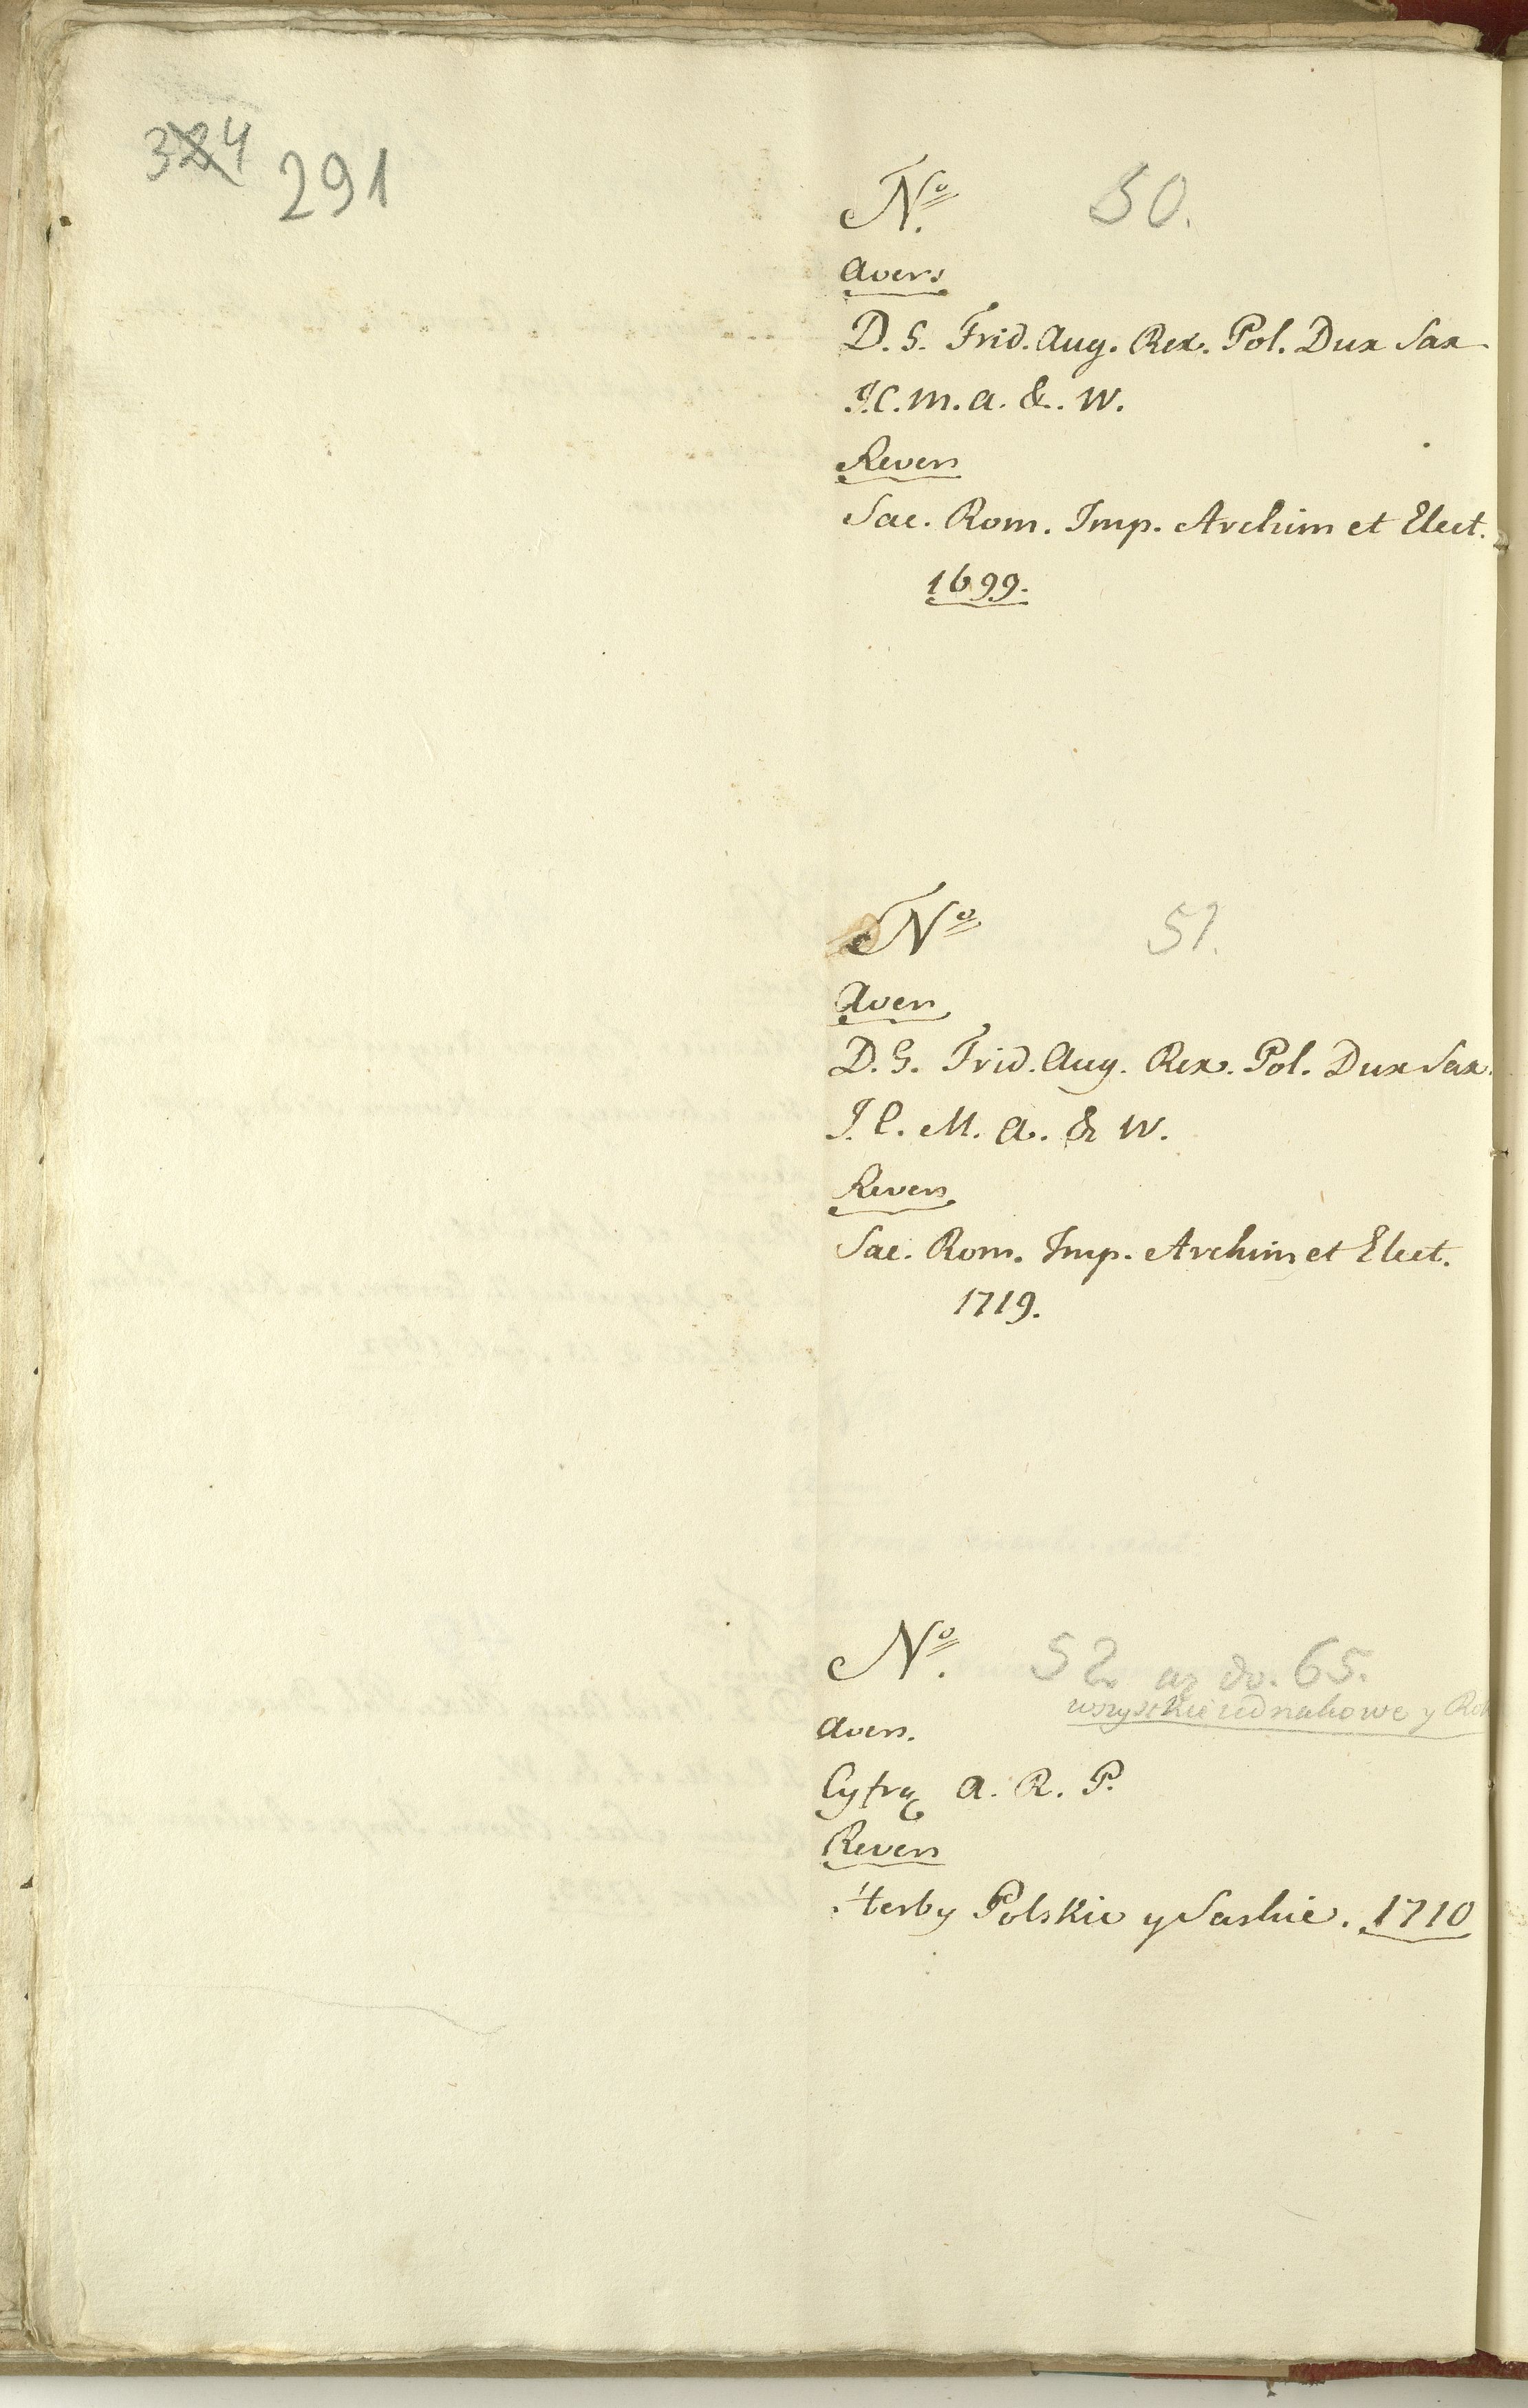 324 291
Nº. 50.
Avers
D. G. Frid. Aug. Rex. Pol. Dux Sax
J. C. M. A. &. W.
Revers
Sac. Rom. Imp. Archim et Elect.
1699.
Nº 51.
Avers
D. G. Frid. Aug. Rex. Pol. Dux Sax.
J. C. M. A. & W.
Revers
Sac. Rom. Imp. Archim et Elect.
1719.
Nº. 52 az do. 65.
wszystkie iednakowe y
Avers.
Cyfrą A. R. P.
Revers
Herby Polskie y Saskie. 1710